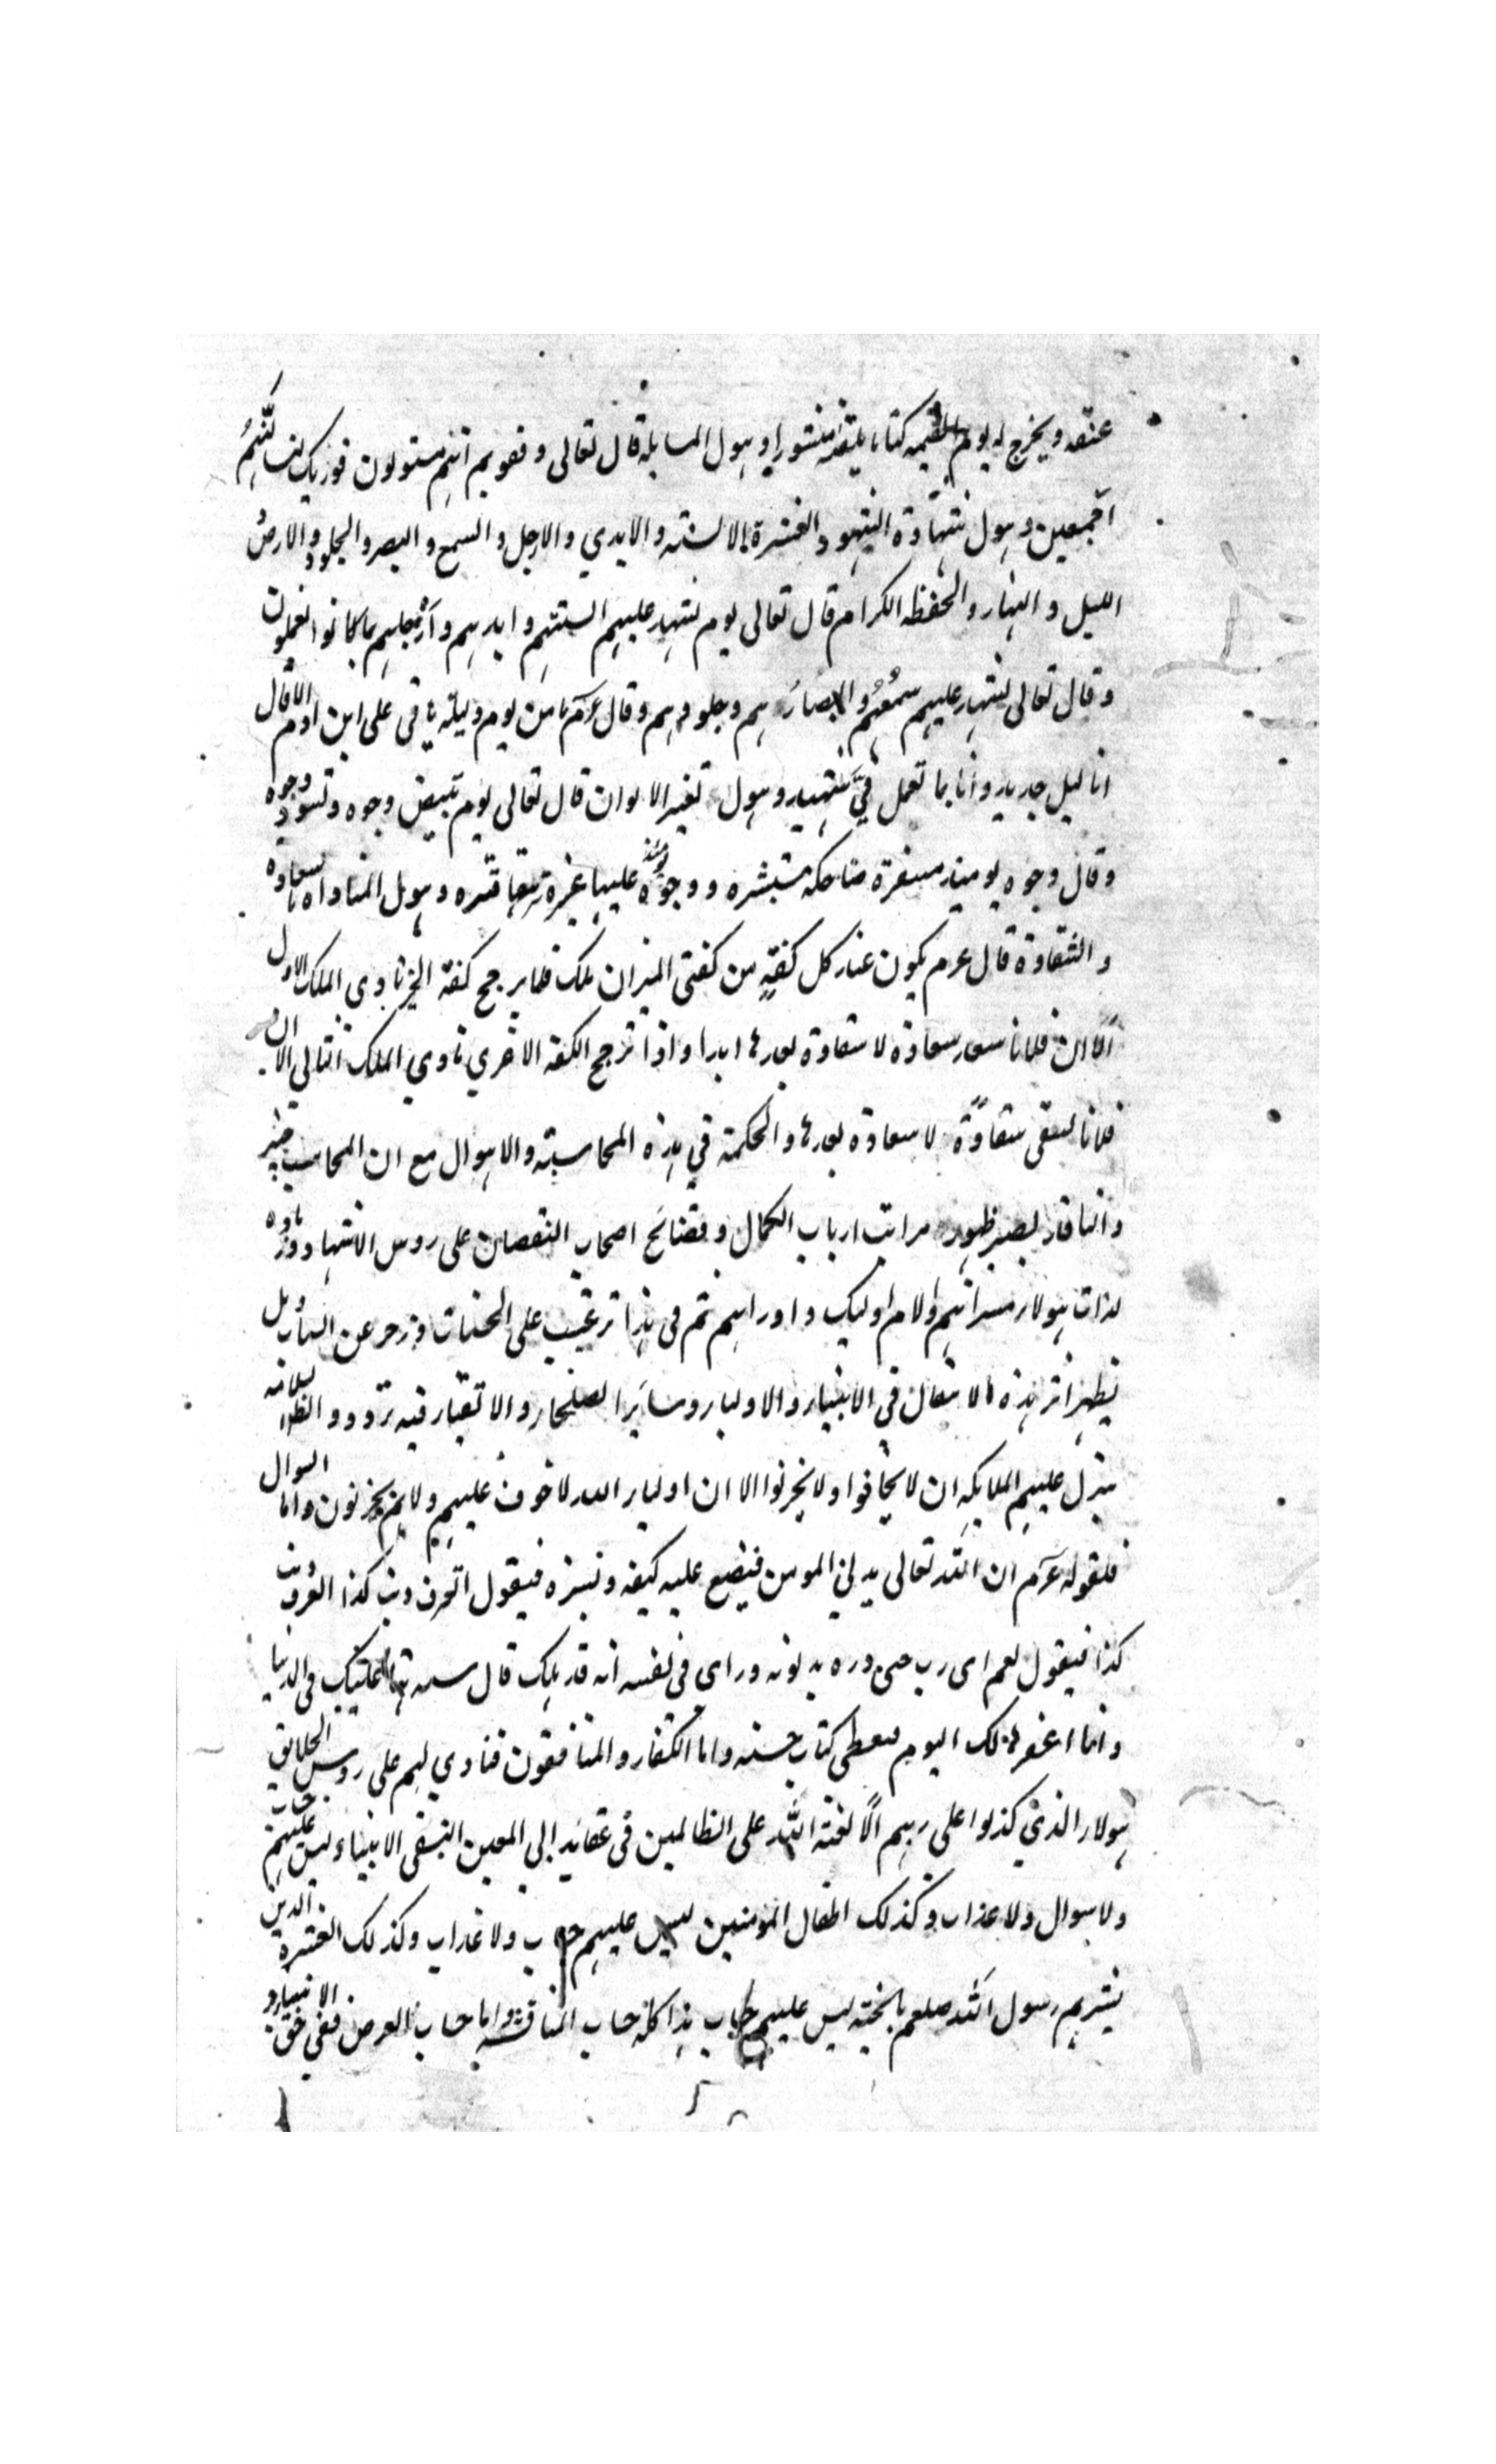 عنقه ويخرج له يوم القيمه كتابا يلقه منشورا وهول المسايلة قال تعالى وقفوهم انهم مسئولون فوربك لنسئلنهم
اجمعين وهول شهادة الشهود العشرة الالسنته والايدي والارجل والسمع والبصر والجلود والارض
الليل والنهار والحفظه الكرام قال تعالى يوم تشهد عليهم السنتهم وايديهم وارجلهم بما كانوا يعملون
وقال تعالى شهد عليهم سمعهم والابصارهم وجلودهم وقال عم ما من يوم وليلة ياتى على ابن ادم الا قال
انا ليل جديد وانا بما تعمل في شهيد وهول تغير الالوان قال تعالى يوم تبيض وجوه وتسود وجوه
وقال وجوه يومئذ مسفرة ضاحكه مستبشره ووجوه يومئذ عليها غبرة ترهقها قتره وهول المناداه بالسعادة
والشقاوة قال عم يكون عند كل كفة من كفتى الميزان ملك فلما يرجح كفة الخير نادي الملك الاول
الا ان فلانا سعد سعادة لا شقاوة بعدها ابدا واذا ترجح الكفة الاخري نادي الملك الثاني الا ان
فلانا لشقى شقاوة لا سعادة بعدها والحكمة في هذه المحاسبته والاهوال مع ان المحاسب خبير
والناقد بصير ظهور مراتب ارباب الكمال وفضائح اصحاب النقصان على روس الاشهاد وزيادة
لذات هولاء مسراتهم والام اوليك واحزانهم ثم فى هذا ترغيب على الحسنات وزجر عن السيات وهل
يظهر اثر هذه الاهوال في الانبياء والاولياء وساير الصلحاء والاتقياء فيه تردد والظاهر السلامة
يتنزل عليهم الملايكه ان لا تخافوا ولا تحزنوا الا ان اولياء الله لا خوف عليهم ولا هم يحزنون واما السوال
فلقوله عم ان الله تعالى يدني المومن فيضع عليه كنفه ويستره فيقول اتعرف ذنب كذا اتعرف ذنب
كذا فيقول نعم اى رب حتى قرره بذنوبه وراى فى نفسه انه قد هلك قال سترتها عليك فى الدنيا
وانا اغفرها لك اليوم فيعطى كتاب حسنه واما الكفار والمنافقون فنادي لهم على روس الخلايق
هولاء الذين كذبوا على ربهم الا لعنة الله على الظالمين فى عقايد ابي المعين النسفى الانبياء ليس عليهم حساب
ولا سوال ولا عذاب وكذلك اطفال المومنين ليس عليهم حساب ولا عذاب وكذلك العشرة الذين
بشرهم رسول الله صلعم بالجنة ليس عليهم حساب هذا كله حساب المناقشه واما حساب العرض ففي حق الانبياء و